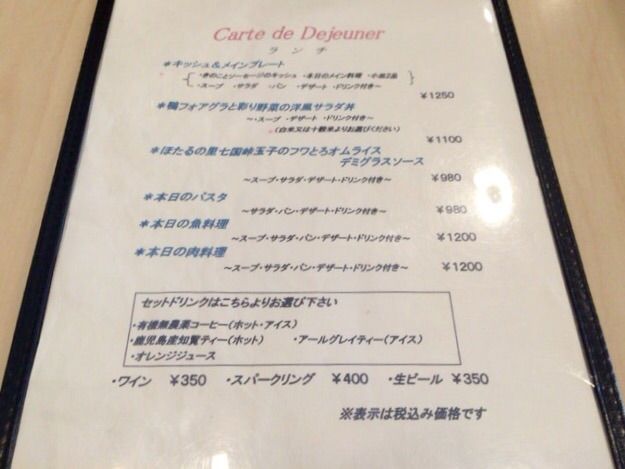 Carte de Dejeuner
ランチ
＊キッシュ＆メインプレート
・きのことソーセージのキッシュ ・本日のメイン料理 ・小皿2品
・スープ ・サラダ ・パン ・デザート ・ドリンク付き～
￥1250
＊鴨フォアグラと彩り野菜の洋風サラダ丼
～・スープ ・デザート ・ドリンク付き～
(白米又は十穀米よりお選びください)
￥1100
＊ほたるの里七国峠玉子のフワとろオムライス
デミグラスソース
～スープ・サラダ・デザート・ドリンク付き～ ￥980
＊本日のパスタ
～サラダ・パン・デザート・ドリンク付き～ ￥980
＊本日の魚料理
～スープ・サラダ・パン・デザート・ドリンク付き～ ￥1200
＊本日の肉料理
～スープ・サラダ・パン・デザート・ドリンク付き～ ￥1200
セットドリンクはこちらよりお選び下さい
・有機無農薬コーヒー(ホット・アイス)
・鹿児島産知覧ティー(ホット) ・アールグレイティー(アイス)
・オレンジジュース
・ワイン ￥350 ・スパークリング ￥400 ・生ビール ￥350
※表示は税込み価格です